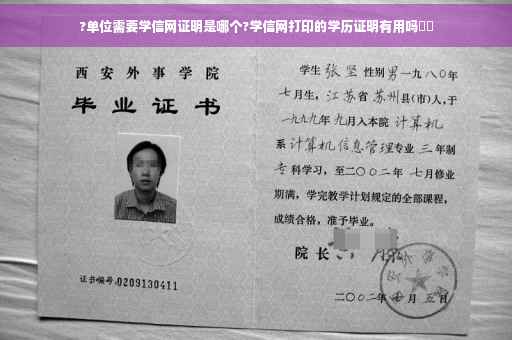 ?单位需要学信网证明是哪个?学信网打印的学历证明有用吗
西安外事学院
毕业证书
证书编号:0209130411
学生 张坚 性别 男 一九八〇年
七月生, 江苏省 苏州县(市)人,于
一九九九年 九月入本院 计算机
系 计算机信息管理专业 三 年制
专科学习, 至二〇〇二年 七月修业
期满, 学完教学计划规定的全部课程,
成绩合格, 准予毕业。
院长
二〇〇二年 七月 五日